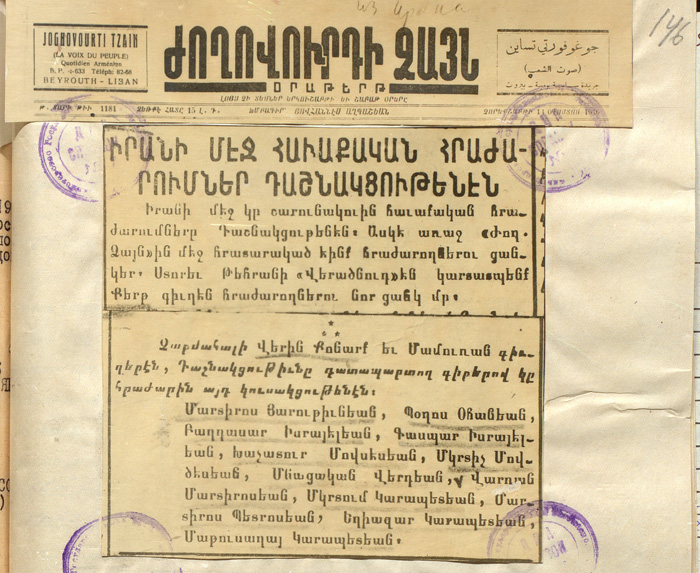 146
JOGHOVOURTI TZAIN
(LA VOIX DU PEUPLE)
Quotidien Arménien
B. P. 633 Téléph: 62-68
BEYROUTH - LIBAN
ԺՈՂՈՎՈՒՐԴԻ ՁԱՅՆ
ՕՐԱԹԵՐԹ
جوغوفورتي تساين
(صوت الشعب)
ԼՈՅՍ ՉԻ ՏԵՍՆԵՐ ԵՐԿՈՒՇԱԲԹԻ ԵՒ ՇԱԲԱԹ ՕՐԵՐԸ
Գ. ՏԱՐԻ ԹԻՒ 1181 ՀԱՏԸ 15 Լ. Ղ.
ԻՐԱՆԻ ՄԷՋ ՀԱՒԱՔԱԿԱՆ ՀՐԱԺԱ-
ՐՈՒՄՆԵՐ ԴԱՇՆԱԿՑՈՒԹԵՆԷՆ
Իրանի մէջ կը շարունակուին հաւաքական հրա-
ժարումները Դաշնակցութենէն: Ասկէ առաջ «Ժող.
Ձայն»ին մէջ հրատարակած էինք հրաժարողներու ցան-
կեր. Ստորեւ Թեհրանի «Վերածնունդ»էն կարտատպենք
Քերք գիւղէն հրաժարողներու նոր ցանկ մը.
Չարմահալի Վերին Քոնարք եւ Մամուռան գիւ-
ղերէն, Դաշնակցութիւնը դատապարտող գիրերով կը
հրաժարին այդ կուսակցութենէն.
Մարտիրոս Յարութիւնեան, Պօղոս Օհանեան,
Բաղդասար Իսրայէլեան, Գասպար Իսրայէլ-
եան, Խաչատուր Մովսեսեան, Մկրտիչ Մով-
սեսեան, Մնացական Վերդեան, Վարդան
Մարտիրոսեան, Մկրտում Կարապետեան, Մար-
տիրոս Պետրոսեան, Եղիազար Կարապետեան,
Մաթուսաղայ Կարապետեան.